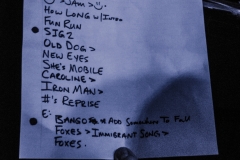 JAM >
HOW LONG W/ INTRO
FUN RUN
SIG 2
OLD DOG >
NEW EYES
SHE'S MOBILE
CAROLINE >
IRON MAN >
#'S REPRISE
E: BANGO ADD Somewhere To Fall
FOXES > IMMIGRANT SONG >
FOXES.